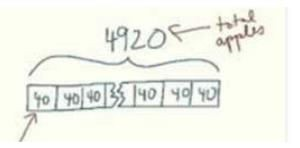 4920
total
apples
40 40 40 40 40 40